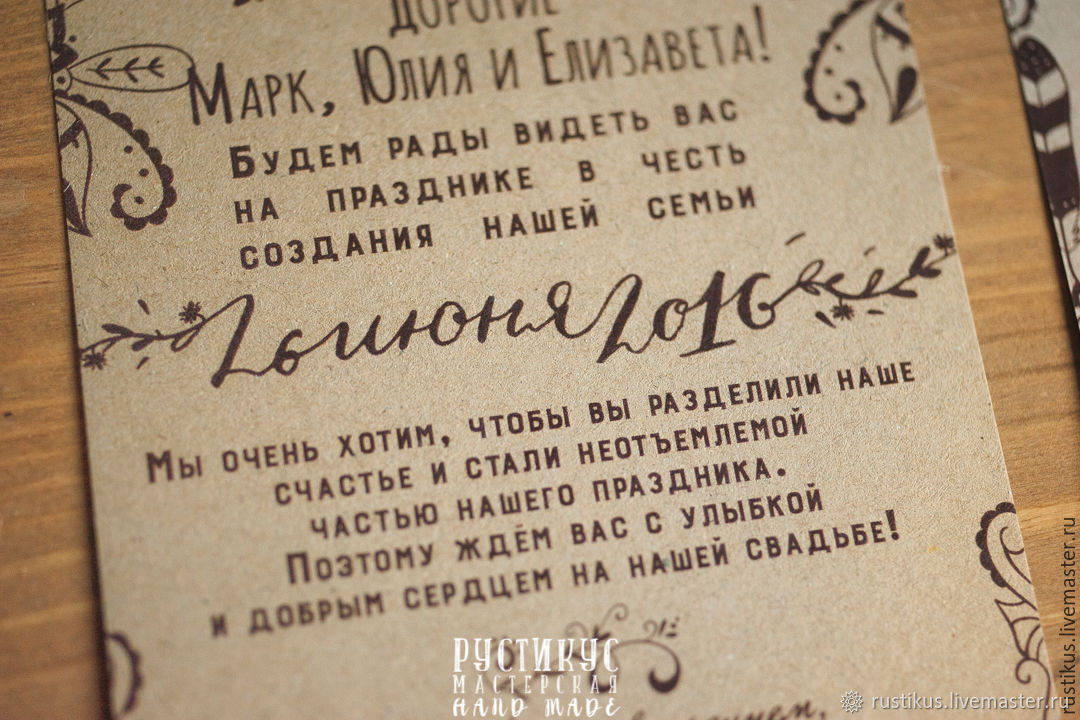 ДОРОГИЕ
МАРК, ЮЛИЯ И ЕЛИЗАВЕТА!
БУДЕМ РАДЫ ВИДЕТЬ ВАС
НА ПРАЗДНИКЕ В ЧЕСТЬ
СОЗДАНИЯ НАШЕЙ СЕМЬИ
26 июня 2016
МЫ ОЧЕНЬ ХОТИМ, ЧТОБЫ ВЫ РАЗДЕЛИЛИ НАШЕ
СЧАСТЬЕ И СТАЛИ НЕОТЪЕМЛЕМОЙ
ЧАСТЬЮ НАШЕГО ПРАЗДНИКА.
ПОЭТОМУ ЖДЁМ ВАС С УЛЫБКОЙ
И ДОБРЫМ СЕРДЦЕМ НА НАШЕЙ СВАДЬБЕ!
РУСТИКУС
МАСТЕРСКАЯ
HAND MADE
rustikus.livemaster.ru
rustikus.livemaster.ru